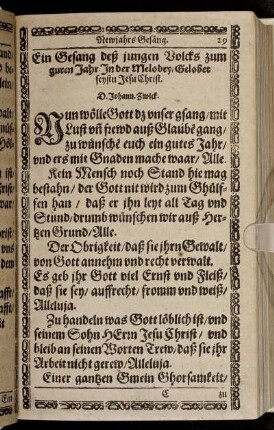 Newjahrs Gesäng. 29
Ein Gesang deß jungen Volcks zum
guten Jahr. In der Melodey, Gelobet
seystu Jesu Christ.
D. Johann. Zwick.
Nun wölle Gott dz vnser gsang/ mit
Lust vñ frewd auß Glaubẽ gang/
zu wünschẽ euch ein gutes Jahr/
vnd ers mit Gnaden mache waar/ Alle.
Kein Mensch noch Stand hie mag
bestahn/ der Gott nit wird zum Ghülf-
fen han/ daß er jhn leyt all Tag vnd
Stund/ drumb wünschen wir auß Her-
tzen Grund/ Alle.
Der Obrigkeit/ daß sie jhrn Gewalt/
von Gott annehm vnd recht verwalt.
Es geb jhr Gott viel Ernst vnd Fleiß/
daß sie sey/ auffrecht/ fromm vnd weiß/
Alleluja.
Zu handeln was Gott löblich ist/ vnd
seinem Sohn HErrn Jesu Christ/ vnd
bleib an seinen Worten Trew/ daß sie jhr
Arbeit nicht gerew/ Alleluja.
Einer gantzen Gmein Ghorsamkeit/
C zu